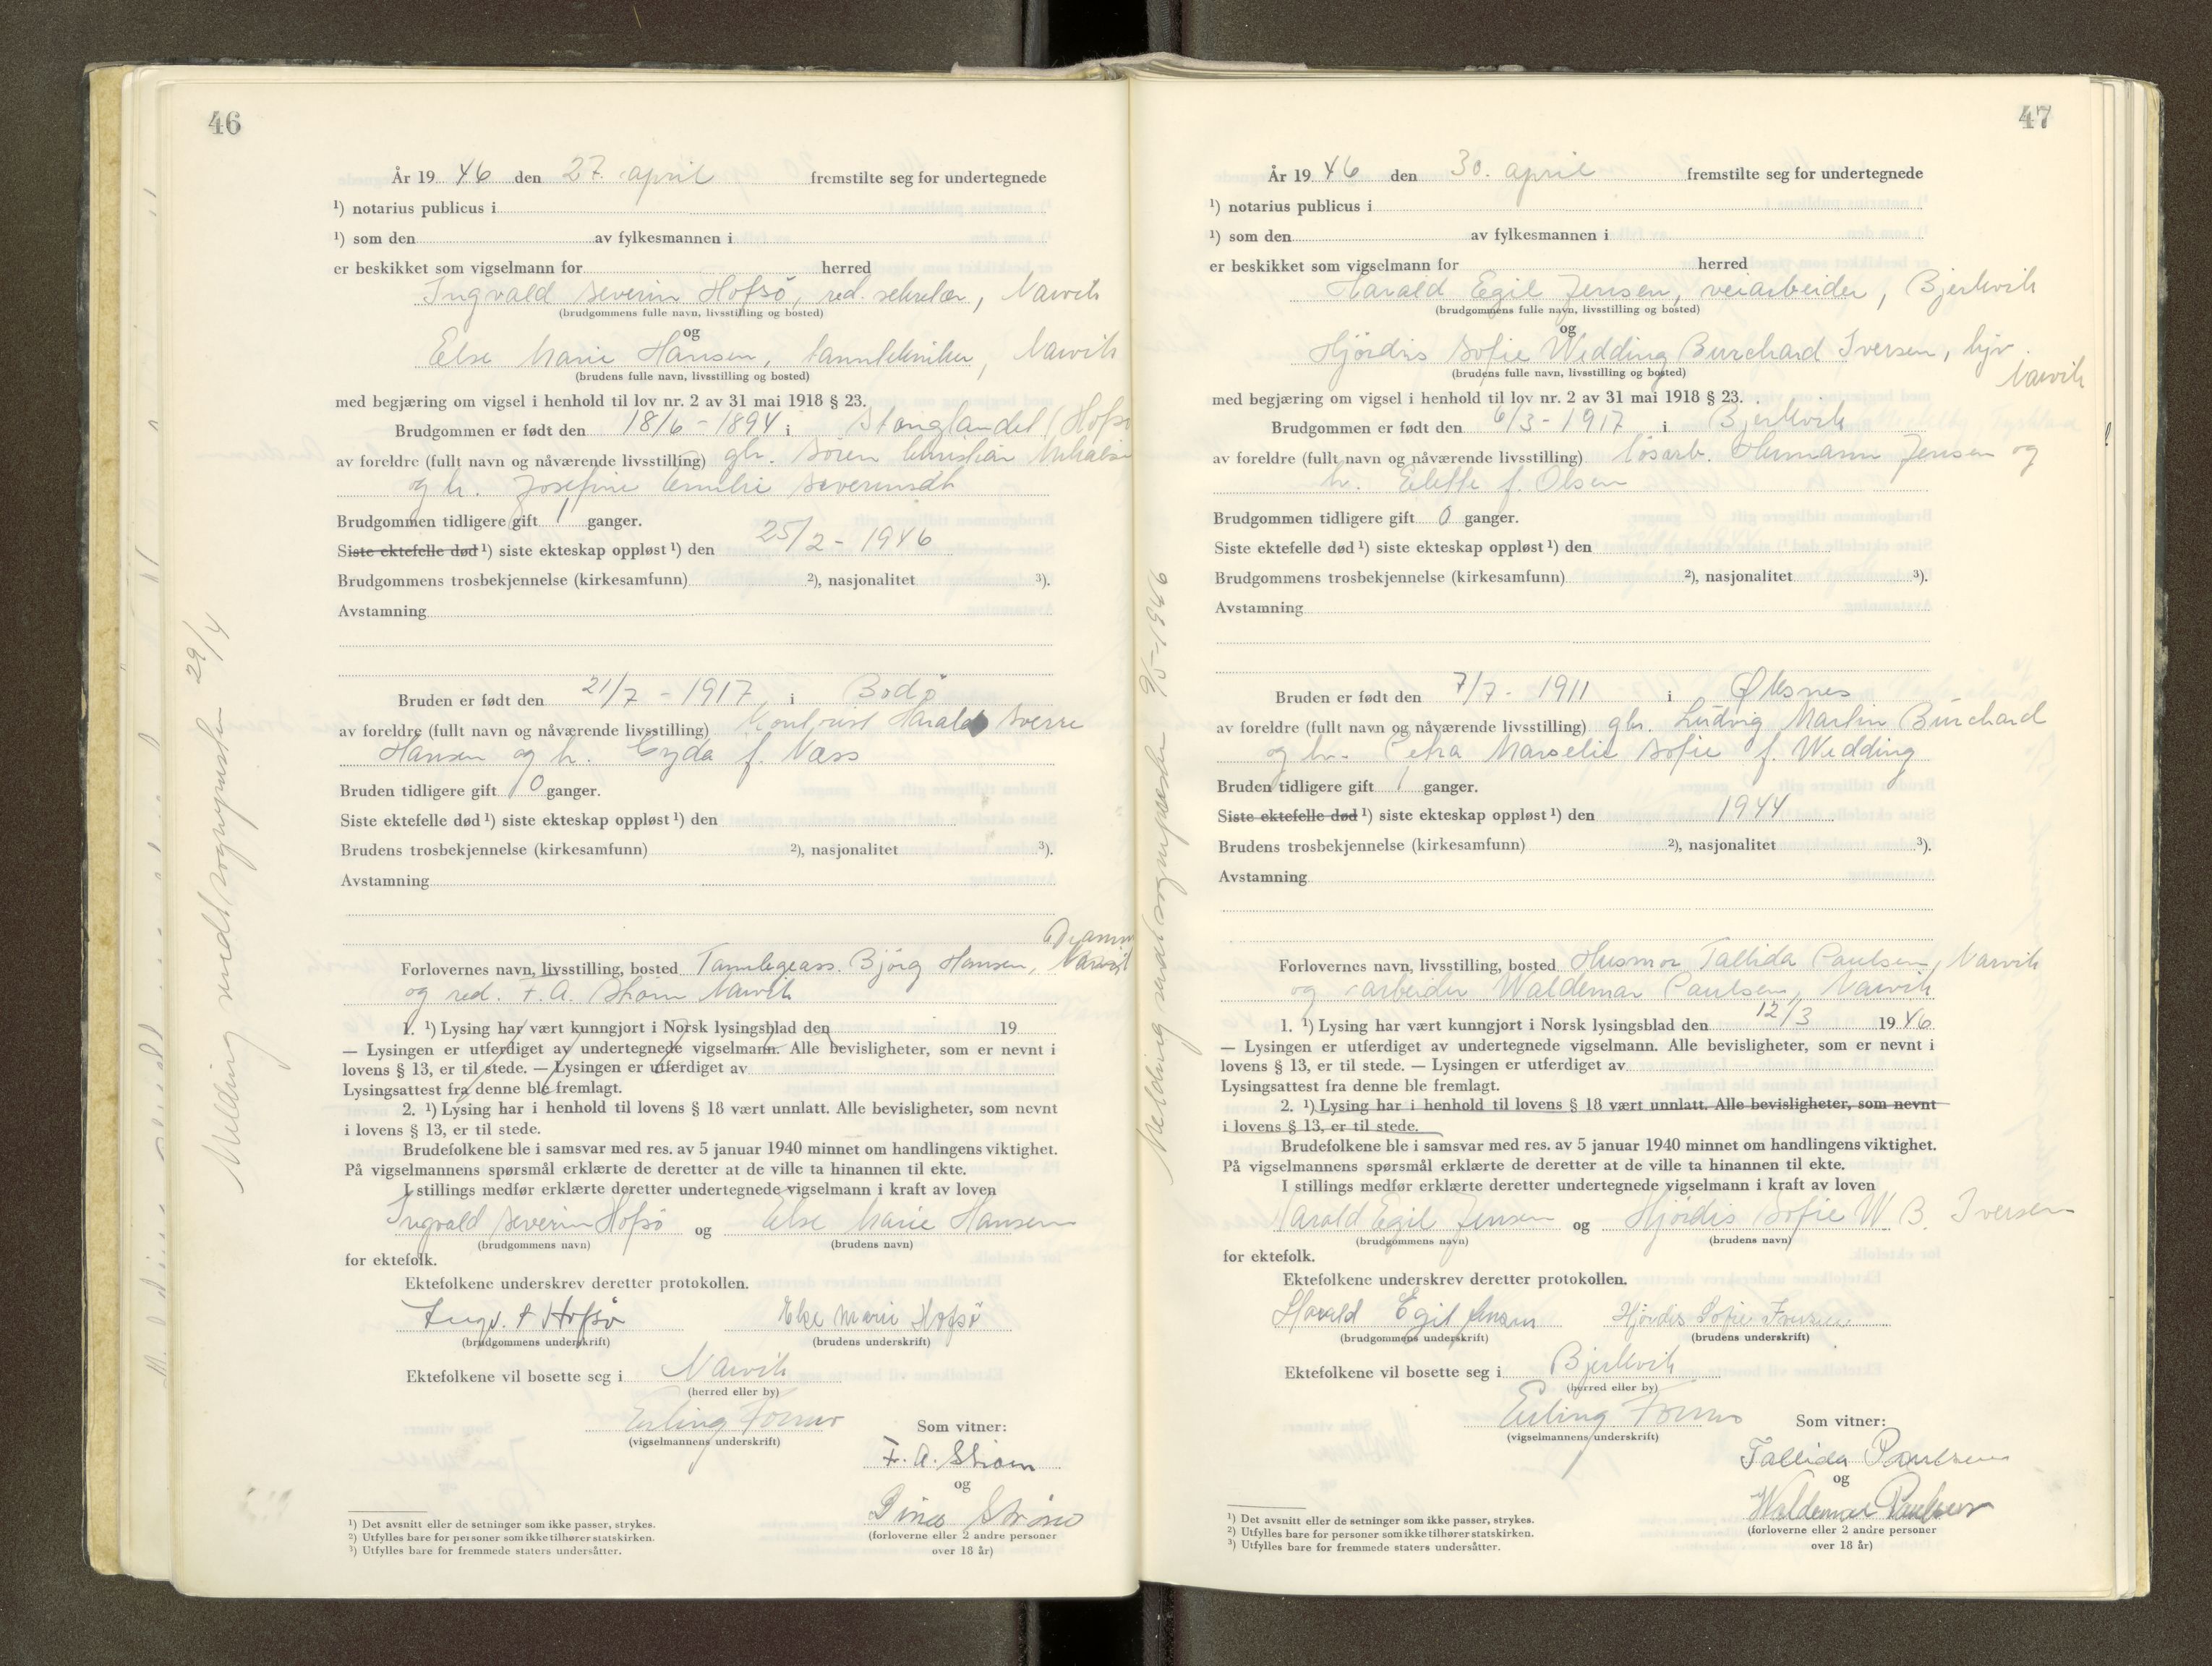 46
År 1946 den 27. april fremstilte seg for undertegnede
¹) notarius publicus i
¹) som den av fylkesmannen i
er beskikket som vigselmann for herred
Ingvald Severin Hofsö, red. sekretær, Narvik
(brudgommens fulle navn, livsstilling og bosted)
og
Else Marie Hansen, tanntekniker, Narvik
(brudens fulle navn, livsstilling og bosted)
med begjæring om vigsel i henhold til lov nr. 2 av 31 mai 1918 § 23.
Brudgommen er født den 18/6 - 1894 i Stonglandet (Hofsö
av foreldre (fullt navn og nåværende livsstilling) gbr. Sören Christian
og h. Josefine Severinsdt
Brudgommen tidligere gift 1 ganger.
Siste ektefelle død ¹) siste ekteskap oppløst ¹) den 25/2 - 1946
Brudgommens trosbekjennelse (kirkesamfunn) ²), nasjonalitet ³).
Avstamning
Bruden er født den 21/7 - 1917 i Bodö
av foreldre (fullt navn og nåværende livsstilling) Harald Sverre
Hansen og h. Gyda f. Næss
Bruden tidligere gift 0 ganger.
Siste ektefelle død ¹) siste ekteskap oppløst ¹) den
Brudens trosbekjennelse (kirkesamfunn) ²), nasjonalitet ³).
Avstamning
Forlovernes navn, livsstilling, bosted Tannlegeass. Björg Hansen, Narvik
og red. F. A. Strøm Narvik
1. ¹) Lysing har vært kunngjort i Norsk lysingsblad den 19
— Lysingen er utferdiget av undertegnede vigselmann. Alle bevisligheter, som er nevnt i
lovens § 13, er til stede. — Lysingen er utferdiget av
Lysingsattest fra denne ble fremlagt.
2. ¹) Lysing har i henhold til lovens § 18 vært unnlatt. Alle bevisligheter, som nevnt
i lovens § 13, er til stede.
Brudefolkene ble i samsvar med res. av 5 januar 1940 minnet om handlingens viktighet.
På vigselmannens spørsmål erklærte de deretter at de ville ta hinannen til ekte.
I stillings medfør erklærte deretter undertegnede vigselmann i kraft av loven
Ingvald Severin Hofsö og Else Marie Hansen
(brudgommens navn) (brudens navn)
for ektefolk.
Ektefolkene underskrev deretter protokollen.
Ingv. S Hofsö Else Marie Hofsö
(brudgommens underskrift) (brudens underskrift)
Ektefolkene vil bosette seg i Narvik
(herred eller by)
Erling
(vigselmannens underskrift)
Som vitner:
F. A. Strøm
og
Strøm
(forloverne eller 2 andre personer
over 18 år)
¹) Det avsnitt eller de setninger som ikke passer, strykes.
²) Utfylles bare for personer som ikke tilhører statskirken.
³) Utfylles bare for fremmede staters undersåtter.
Melding sendt sognepresten 29/4
47
År 1946 den 30. april fremstilte seg for undertegnede
¹) notarius publicus i
¹) som den av fylkesmannen i
er beskikket som vigselmann for herred
Harald Egil Jensen, veiarbeider, Bjerkvik
(brudgommens fulle navn, livsstilling og bosted)
og
Hjördis Sofie Wedding Burchard Iversen, hjv.
Narvik
(brudens fulle navn, livsstilling og bosted)
med begjæring om vigsel i henhold til lov nr. 2 av 31 mai 1918 § 23.
Brudgommen er født den 6/3 - 1917 i Bjerkvik
av foreldre (fullt navn og nåværende livsstilling) lösarb. Hermann Jensen og
h. f. Olsen
Brudgommen tidligere gift 0 ganger.
Siste ektefelle død ¹) siste ekteskap oppløst ¹) den
Brudgommens trosbekjennelse (kirkesamfunn) ²), nasjonalitet ³).
Avstamning
Bruden er født den 7/7 - 1911 i Øksnes
av foreldre (fullt navn og nåværende livsstilling) gbr. Ludvig Martin Burchard
og h. Petra Marselie Sofie f. Wedding
Bruden tidligere gift 1 ganger.
Siste ektefelle død ¹) siste ekteskap oppløst ¹) den 1944
Brudens trosbekjennelse (kirkesamfunn) ²), nasjonalitet ³).
Avstamning
Forlovernes navn, livsstilling, bosted Husmor Tallida Paulsen, Narvik
og arbeider Waldemar Paulsen, Narvik
1. ¹) Lysing har vært kunngjort i Norsk lysingsblad den 12/3 1946
— Lysingen er utferdiget av undertegnede vigselmann. Alle bevisligheter, som er nevnt i
lovens § 13, er til stede. — Lysingen er utferdiget av
Lysingsattest fra denne ble fremlagt.
2. ¹) Lysing har i henhold til lovens § 18 vært unnlatt. Alle bevisligheter, som nevnt
i lovens § 13, er til stede.
Brudefolkene ble i samsvar med res. av 5 januar 1940 minnet om handlingens viktighet.
På vigselmannens spørsmål erklærte de deretter at de ville ta hinannen til ekte.
I stillings medfør erklærte deretter undertegnede vigselmann i kraft av loven
Harald Egil Jensen og Hjördis Sofie W. B. Iversen
(brudgommens navn) (brudens navn)
for ektefolk.
Ektefolkene underskrev deretter protokollen.
Harald Egil Jensen Hjördis Sofie Iversen
(brudgommens underskrift) (brudens underskrift)
Ektefolkene vil bosette seg i Bjerkvik
(herred eller by)
Erling
(vigselmannens underskrift)
Som vitner:
Tallida Paulsen
og
Waldemar Paulsen
(forloverne eller 2 andre personer
over 18 år)
¹) Det avsnitt eller de setninger som ikke passer, strykes.
²) Utfylles bare for personer som ikke tilhører statskirken.
³) Utfylles bare for fremmede staters undersåtter.
Melding sendt sognepresten 9/5-1946